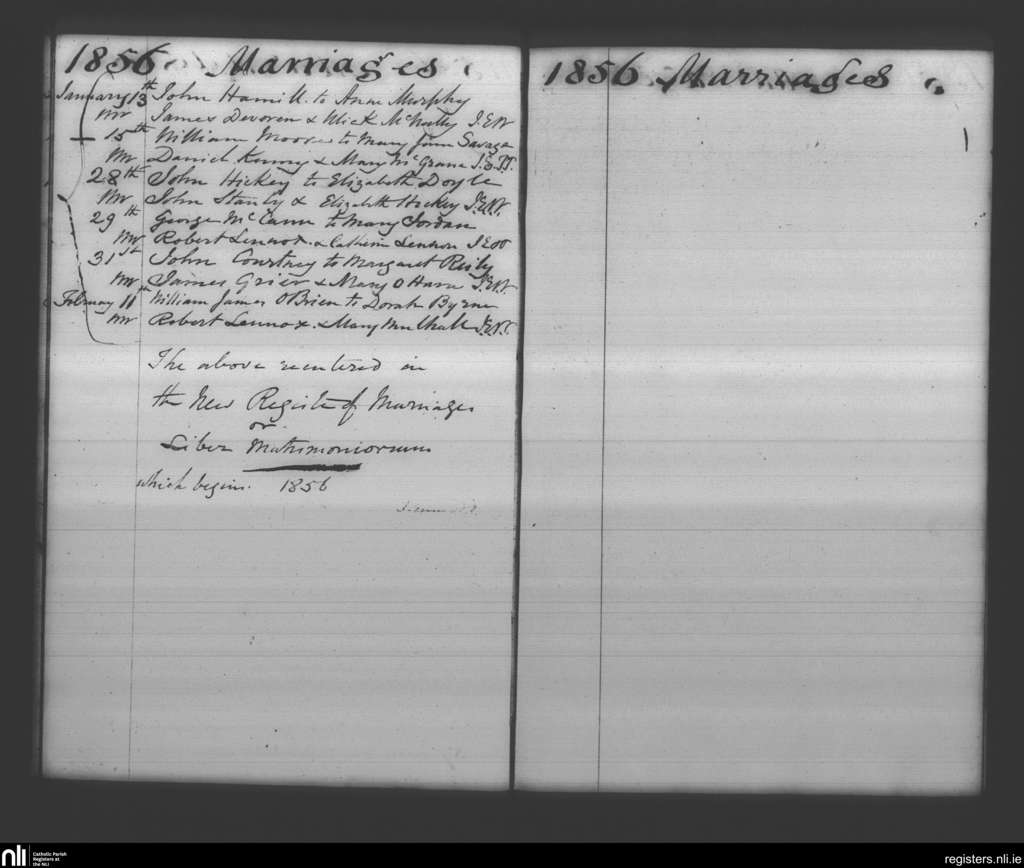 1856 Marriages
January 13th John Hamill to Anne Murphy
Mr James Devoren & Mick McNally J.E.W
15th William Moore to Mary Jane Savage
Mr Daniel Kenny & Mary McGrane
28th John Hickey to Elizabeth Doyle
Mr John Stanly & Elizabeth Hickey
29th George McCann to Mary Jordan
Mr Robert Lennox & Catherine Lennon
31st John Courtney to Margaret Reily
Mr James Grier & Mary O Hara J.E.W.
February 11th William James O'Brien to Dorah Byrne
Mr Robert Lennox & Mary Mulhall
The above reentered in
the New Register of Marriages
or
Liber Matrimoniorum
which begins 1856
1856 Marriages
nli Catholic Parish
Registers at
the NLI
registers.nli.ie